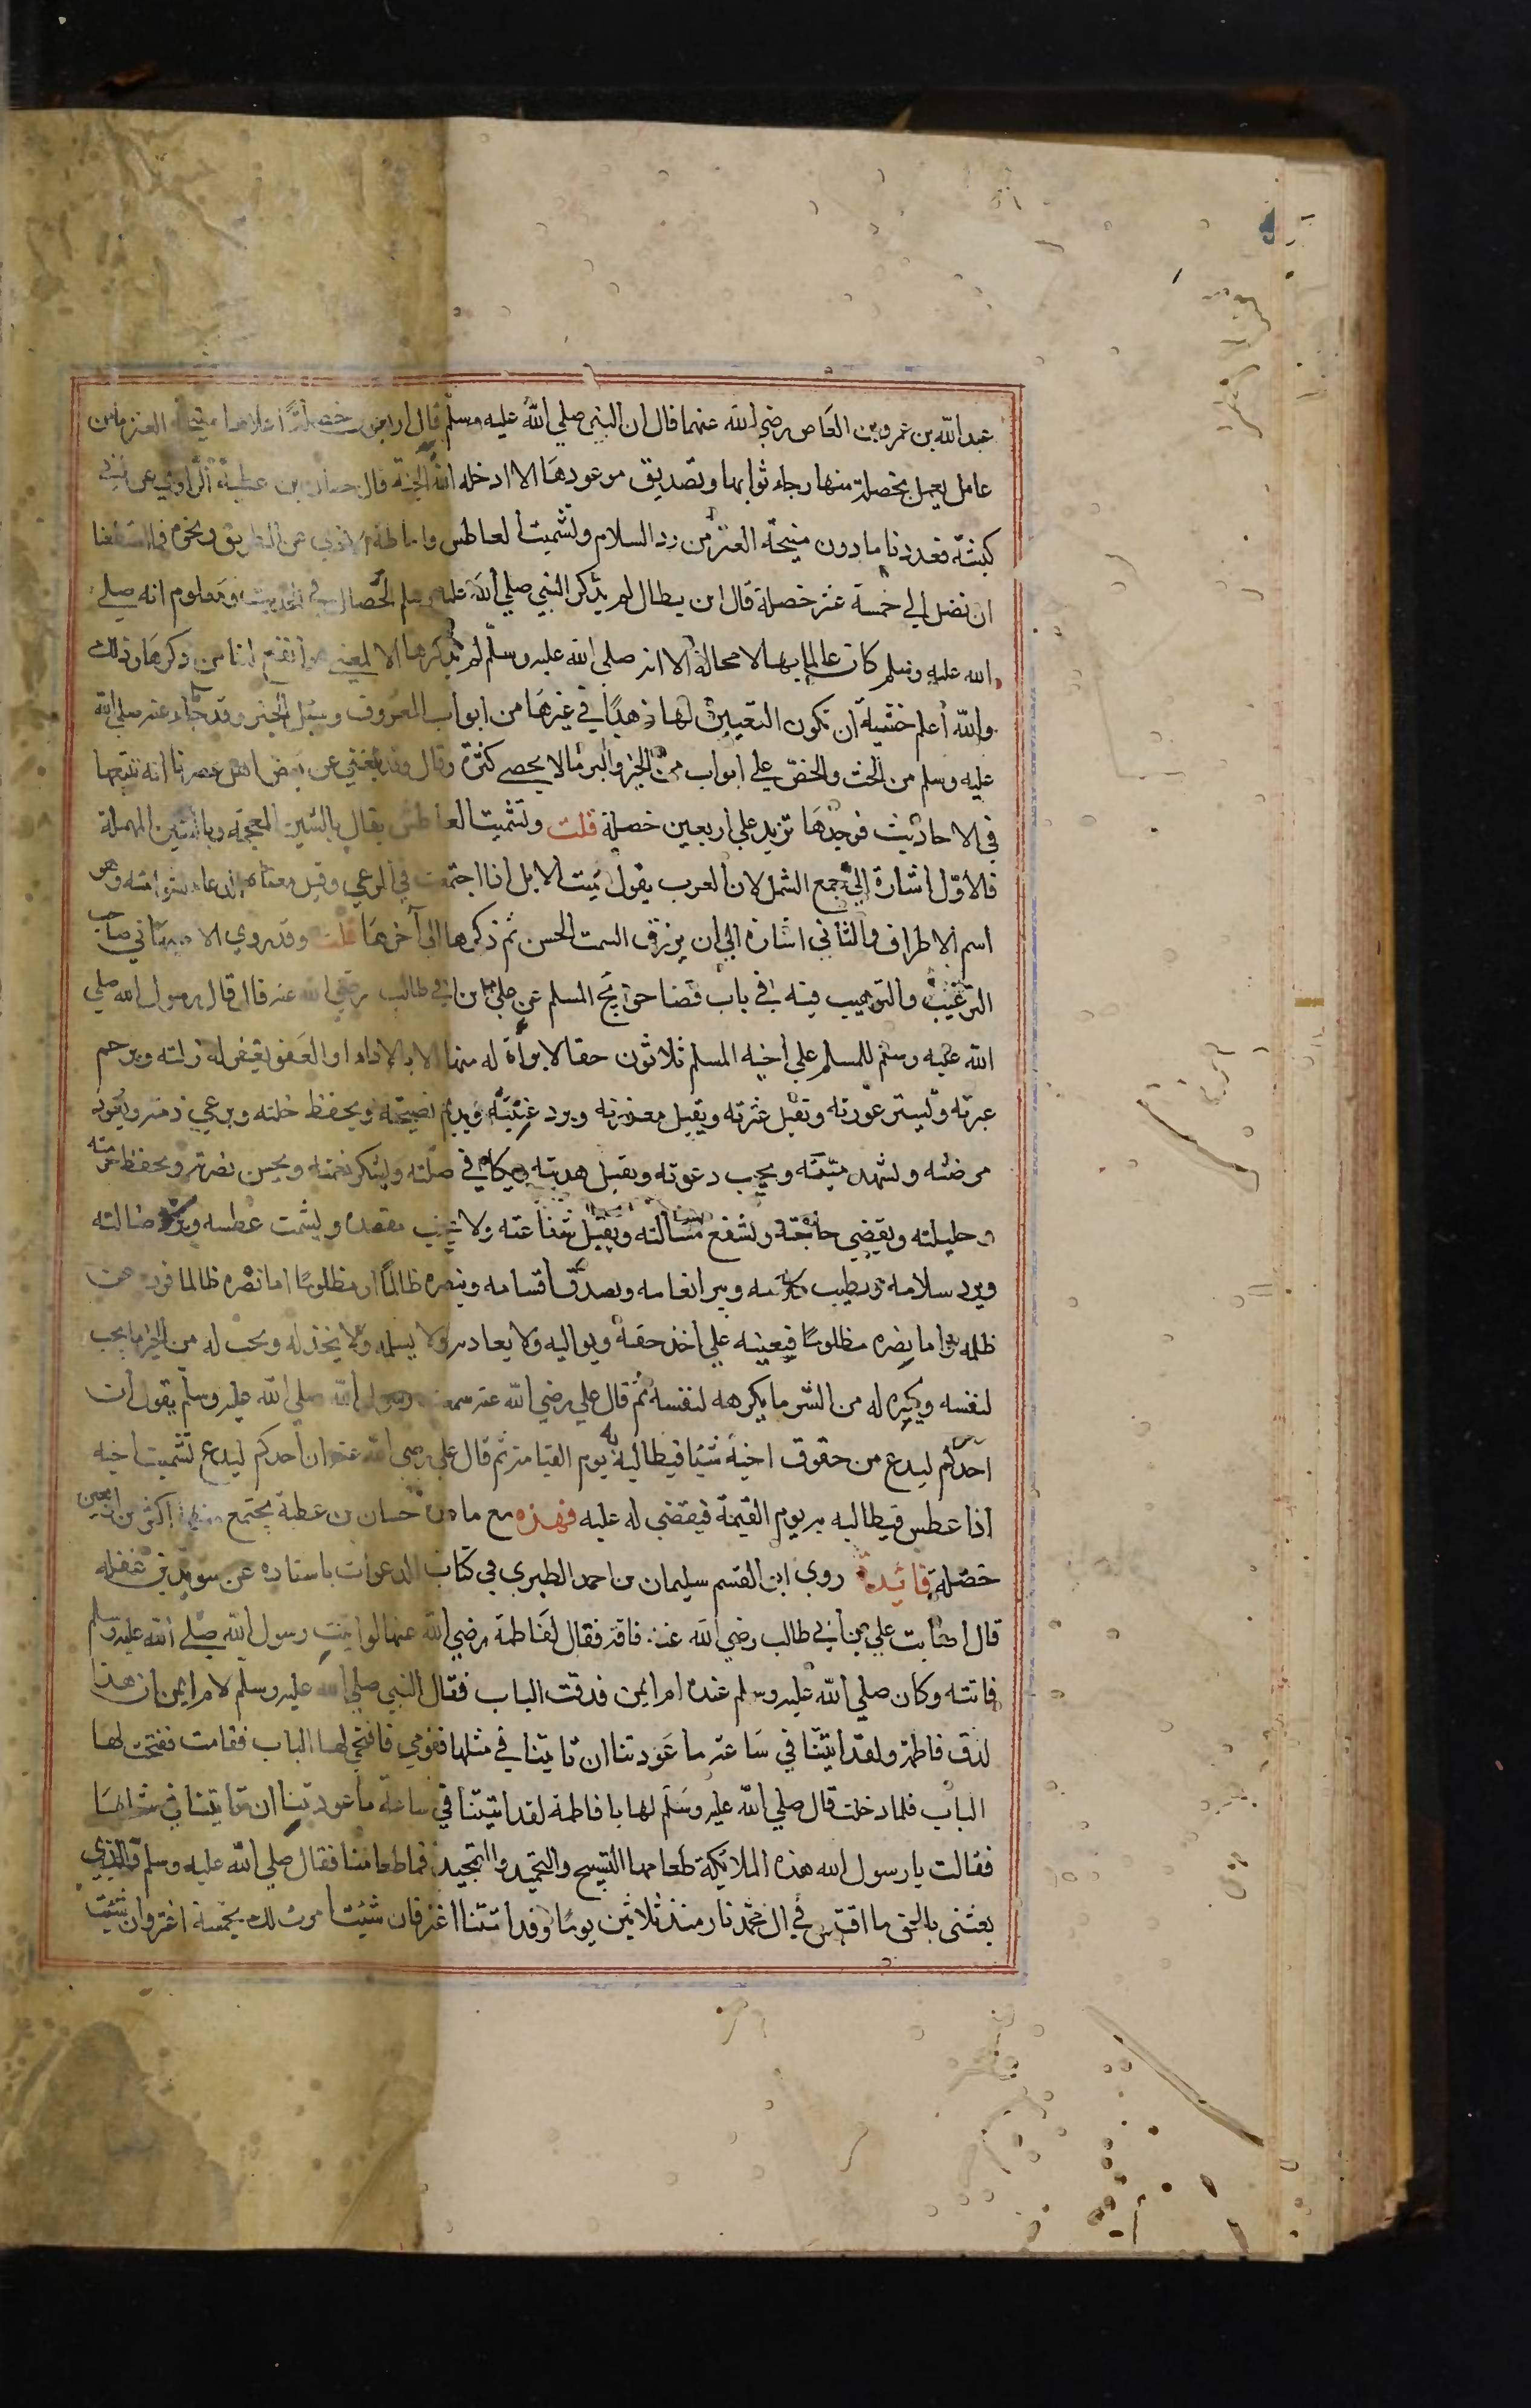 عبد الله بن عمرو بن العاص رضي الله عنهما قال ان النبي صلي الله عليه وسلم قال اربعون خصلة اعلاها منيحة العنز ما من
عامل يعمل بخصلة منها رجاء ثوابها وتصديق موعودها الا ادخله الله الجنة قال حسان بن عطية الراوي عن ابي
كبشة فعددنا ما دون منيحة العنز من رد السلام وتشميت العاطس واماطة الاذي عن الطريق ونحوه فما استطعنا
ان نصل الي خمسة عشر خصلة قال ابن بطال لم يذكر النبي صلي الله عليه وسلم الخصال في الحديث ومعلوم انه صلي
الله عليه وسلم كان عالما بها لا محالة الا انه صلي الله عليه وسلم لم يذكرها الا لمعني هو انفع لنا من ذكرها وذلك
والله أعلم خشية ان تكون التعيين لها زهدًا في غيرها من ابواب المعروف وسبل الخير وقد جاء عنه صلي الله
عليه وسلم من الحث والحض علي ابواب من الخير والبر ما لا يحصي كثرة وقال وقد بلغني عن بعض اهل عصرنا انه تتبعها
في الاحاديث فوجدها تزيد علي اربعين خصلة قلت وتشميت العاطس يقال بالشين المعجمة وبالسين المهملة
فالأوّل اشارة الي جمع الشمل لان العرب يقول شمت الابل اذا اجتمعت في المرعي وقيل معناه الدعاء لشوامته وهو
اسم الاطراف والثاني اشارة الي ان يرزق السمت الحسن ثم ذكرها الي آخرها قلت وقد روي الاصبهاني صاحب
الترغيب والترهيب فيه في باب قضا حوايج المسلم عن علي بن ابي طالب رضي الله عنه قال قال رسول الله صلي
الله عليه وسلم للمسلم علي أخيه المسلم ثلاثون حقا لا براة له منها الا بالاداء او العفو يغفر له زلته ويرحم
عبرته ويستر عورته وتقبل عثرته ويقبل معذرته ويرد غيبته ويديم نصيحته ويحفظ خلته ويرعي ذمته ويعود
مرضته ولشهد ميتته ويجيب دعوته ويقبل هديته ويكافي في صلته وليشكر نعمته ويحسن نصرته ويحفظ حرمته
و حليلته ويقضي حاجته ولشفع مسالته ويقبل شفاعته ولا يخيب مقصده وليشمت عطسه ويرد ضالته
ويرد سلامه ويطيب كلامه ويبر انعامه ويصدق أقسامه وينصره ظالمًا او مظلومًا اما نصره ظالما فيرده عن
ظلمه واما نصره مظلومًا فيعينه علي اخذ حقه ويواليه ولا يعاديه ولا يسلمه ولا يخذله ويحب له من الخير ما يحب
لنفسه ويكره له من الشر ما يكرهه لنفسه ثم قال علي رضي الله عنه سمعت رسول الله صلي الله عليه وسلم يقول ان
احدكم ليدع من حقوق اخيه شيئا فيطالبه به يوم القيامة ثم قال علي رضي الله عنه ان أحدكم ليدع تشميت اخيه
اذا عطس فيطالبه به يوم القيمة فيقضي له عليه فهذه مع ما من حسان بن عطية يجتمع منها اكثر من اربعين
خصلة فائدة روي ابن القسم سليمان بن احمد الطبري في كتاب الدعوات باسناده عن سويد بن غفله
قال اصابت علي بن أبي طالب رضي الله عنه فاقة فقال لفاطمة رضي الله عنها لو اتيت رسول الله صلي الله عليه وسلم
فاتته وكان صلي الله عليه وسلم عنده ام ايمن فدقت الباب فقال النبي صلي الله عليه وسلم لام ايمن ان هذا
لدق فاطمة ولقد اتتنا في ساعة ما عَوّدتنا ان تاتينا في مثلها فقومي فافتحي لها الباب فقامت ففتحت لها
الباب فلما دخلت قال صلي الله عليه وسلم لها يا فاطمة لقد اتيتنا في ساعة ما عودتينا ان تاتينا في مثلها
فقالت يا رسول الله هذه الملايكة طعامها التسبيح والتحميد والتمجيد فما طعامنا فقال صلي الله عليه وسلم والذي
بعثني بالحق ما اقتبس في ال محمد نار منذ ثلاثين يومًا وقد اتتنا اعنز فان شيئت امرت لك بخمسة اعنز وان شيئت